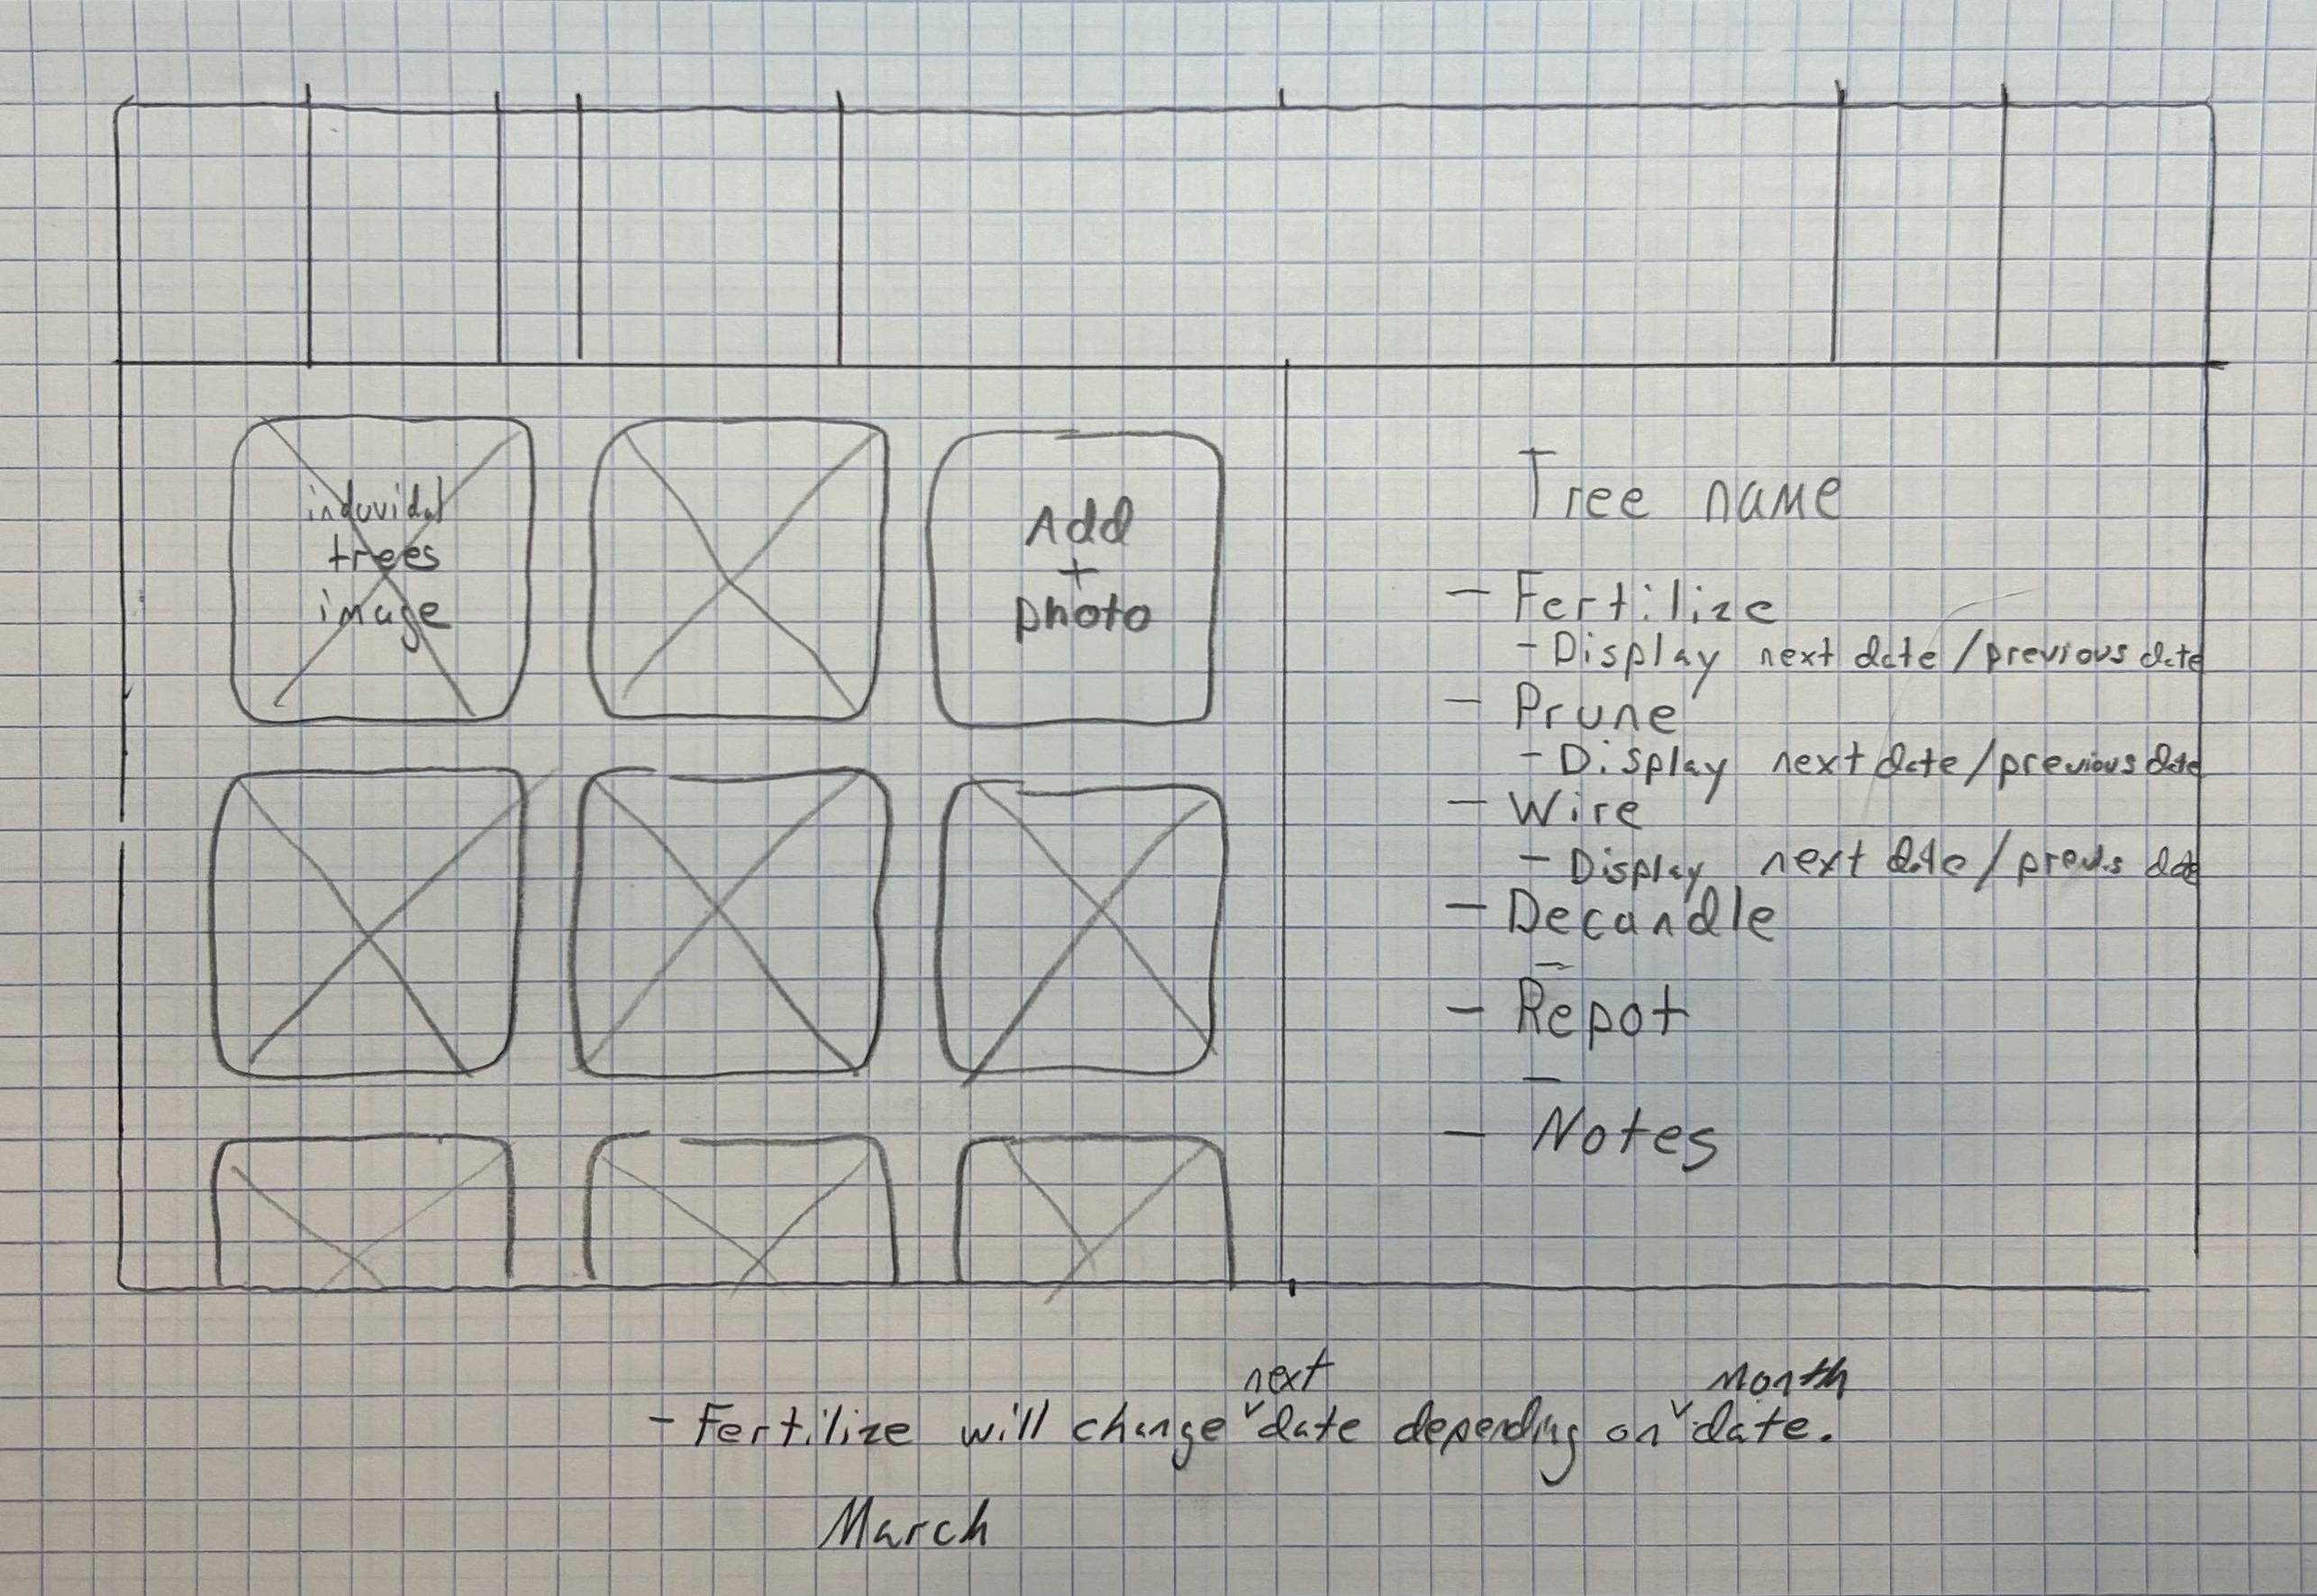 induvidal
trees
image
Add
+
photo
Tree name
- Fertilize
- Display next date/previous date
- Prune
- Display next date/previous date
- Wire
- Display next date/previs date
- Decandle
-
- Repot
-
- Notes
next Month
- Fertilize will change ˅date depending on ˅date.
March